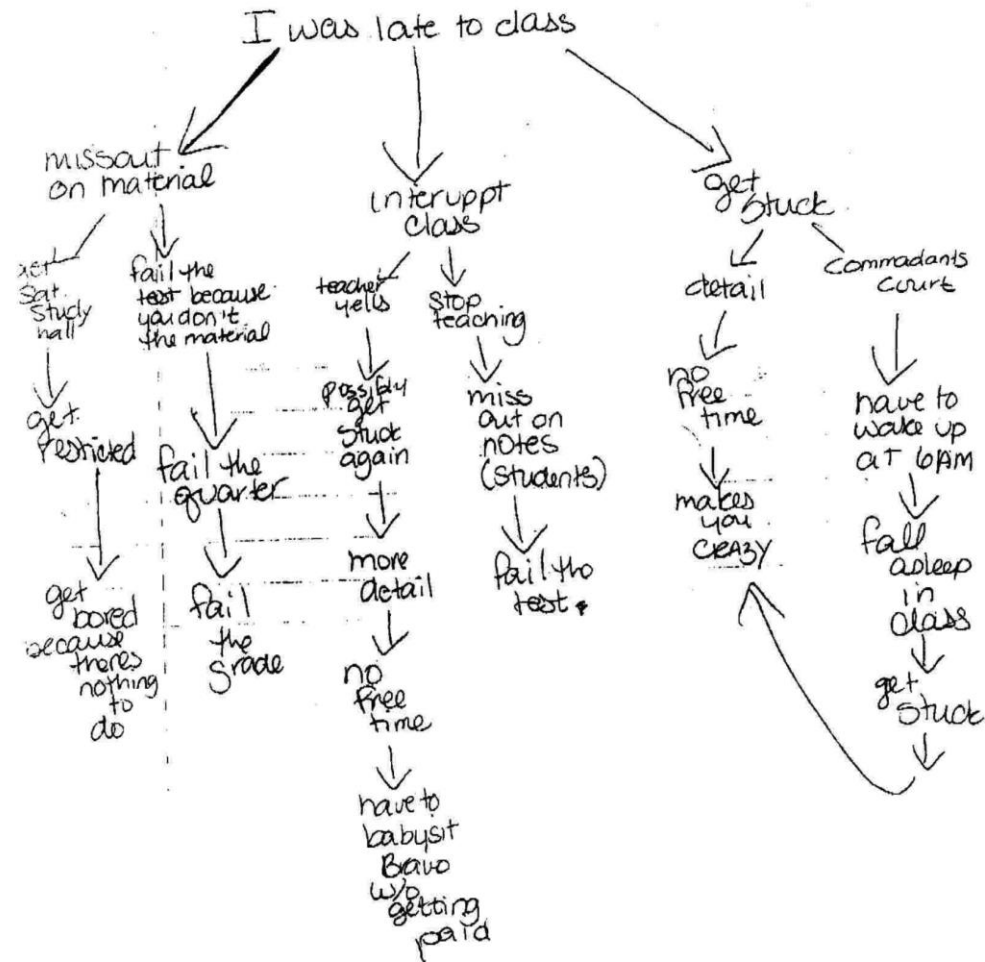 I was late to class
missout
on material
get
Sat.
Study
hall
get
restricted
get
bored
because
theres
nothing
to
do
fail the
test because
you don't
the material
fail the
quarter
fail
the
grade
interuppt
class
teacher
yells
possibly
get
stuck
again
more
detail
no
free
time
have to
babysit
Bravo
w/o
getting
paid
stop
teaching
miss
out on
notes
(students)
fail the
test.
get
stuck
detail
no
free
time
makes
you
CRAZY
Commadants
Court
have to
wake up
at 6AM
fall
asleep
in
class
get
stuck